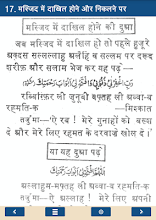 17. मस्जिद में दाखिल होने और निकलने पर
मस्जिद में दाखिल होने की दुआ
जब मस्जिद में दाखिल हो तो पहले हुजूरे
अक़दस सल्लल्लाहु अलैहि व सल्लम पर दरूद
शरीफ़ और सलाम भेज कर यह पढ़े—
رَبِّ اغْفِرْ لِيْ ذُنُوْبِيْ وَافْتَحْ لِيْ اَبْوَابَ رَحْمَتِكَ
रब्बिग़फ़िर ली जुनूबी वफ़्तह ली अब्वा-ब
रहमति-क —मिश्कात
तर्जुमा— 'ऐ रब ! मेरे गुनाहों को बख्श
दे और मेरे लिए रहमत के दरवाजे खोल दे।'
या यह दुआ पढ़े
अल्लाहुम-मफ़्तह ली अब्वा-ब रहमति-क
तर्जुमा—'ऐ अल्लाह ! मेरे लिए अपनी